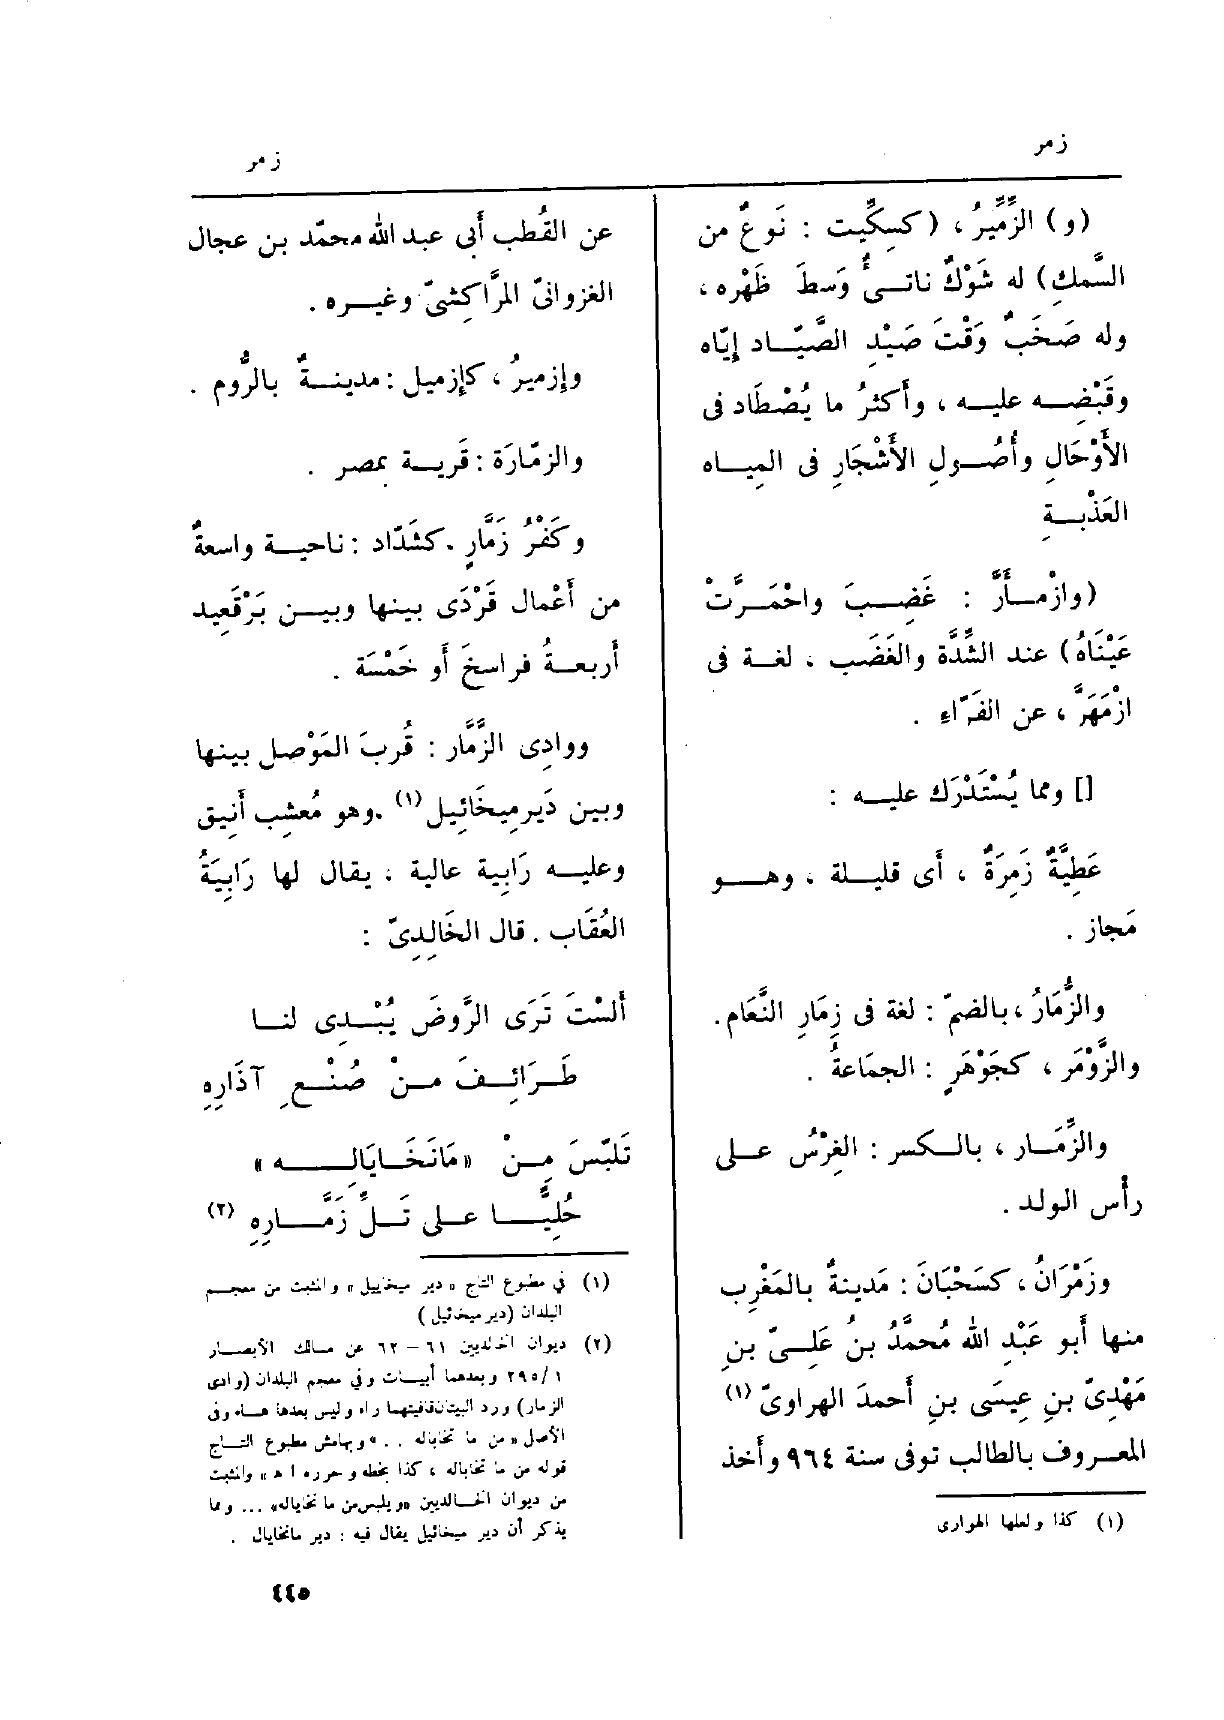 زمر
زمر
(و) الزِّمِّيرُ، (كسِكِّيت : نَوعٌ من
السَّمكِ) له شَوْكٌ ناتـىءٌ وَسطَ ظَهْره،
وله صَخَبٌ وَقْتَ صَيْدِ الصَّيّاد إِيّاه
وقَبْضِه عليه ، وأَكثرُ ما يُصْطَاد فى
الأَوْحَالِ وأُصُولِ الأَشْجَارِ فى المِياه
العَذْبةِ
(وازْمأَرَّ : غَضِبَ واحْمَرَّتْ
عَيْنَاهُ) عند الشِّدَّة والغَضَب ، لغة فى
ازْمَهَرَّ ، عن الفَرّاءِ .
[] ومما يُسْتَدْرَك عليه :
عَطِيَّةٌ زَمِرَةٌ ، أَى قليلة ، وهو
مَجاز .
والزُّمَارُ ، بالضمّ : لغة فى زِمَارِ النَّعَام.
والزَّوْمَر ، كجَوْهَرٍ : الجمَاعةُ .
والزِّمَار ، بالكسر : الغِرْسُ على
رأْس الولد .
وزَمْرَانُ ، كسَحْبَانَ : مَدينةٌ بالمَغْرِب
منها أَبو عَبْدِ الله مُحمَّدُ بنُ عَلِيّ بنِ
مَهْدِىّ بنِ عِيسَى بنِ أَحمدَ الهراوىّ (١)
المعروف بالطالب توفى سنة ٩٦٤ وأَخذ
(١) كذا ولعلها الهوارى
عن القُطب أَبى عبد الله محمّد بن عجال
الغزوانىّ المرَّاكِشىّ وغيره .
وإِزميرُ ، كإِزميل : مدينةٌ بالرُّوم .
والزمّارَة : قَرية بمصر .
وكَفْرُ زَمَّارٍ . كشَدّاد : ناحية واسعةٌ
من أَعْمال قَرْدَى بينها وبين بَرْقَعِيد
أَربعةُ فراسخَ أَو خَمْسَة .
ووادِى الزَّمَّار : قُربَ المَوْصل بينها
وبين دَيرمِيخَائِيل (١) .وهو مُعشِب أَنِيق
وعليه رَابِية عالية ، يقال لها رَابِيَةُ
العُقَاب . قال الخَالِدِىّ :
أَلسْتَ تَرَى الرَّوضَ يُبْدِى لنا
طَرَائِفَ منْ صُنْعِ آذَارِهِ
تَلبّسَ مِنْ «مَانَخَايَالِه »
حُلِيًّا على تَلِّ زَمَّارِهِ (٢)
(١) في مطبوع التاج « دير ميخاييل » والمثبت من معجم
البلدان (دير ميخائيل)
(٢) ديوان الخالديين ٦١ – ٦٢ عن مسالك الأبصار
٢٩٥/١ وبعدهما أبيات وفي معجم البلدان (وادى
الزمار) ورد البيتان قافيتهما راه وليس بعدها هاء وفى
الأصل « من ما تخاباله . . » وبهامش مطبوع التاج
قوله من ما تخاباله ، كذا بخطه وحرره ا ه » والمثبت
من ديوان الخالديين «ويلبس من ما نخاياله» ... ومما
يذكر أن دير ميخائيل يقال فيه : دير مانخايال .
٤٤٥